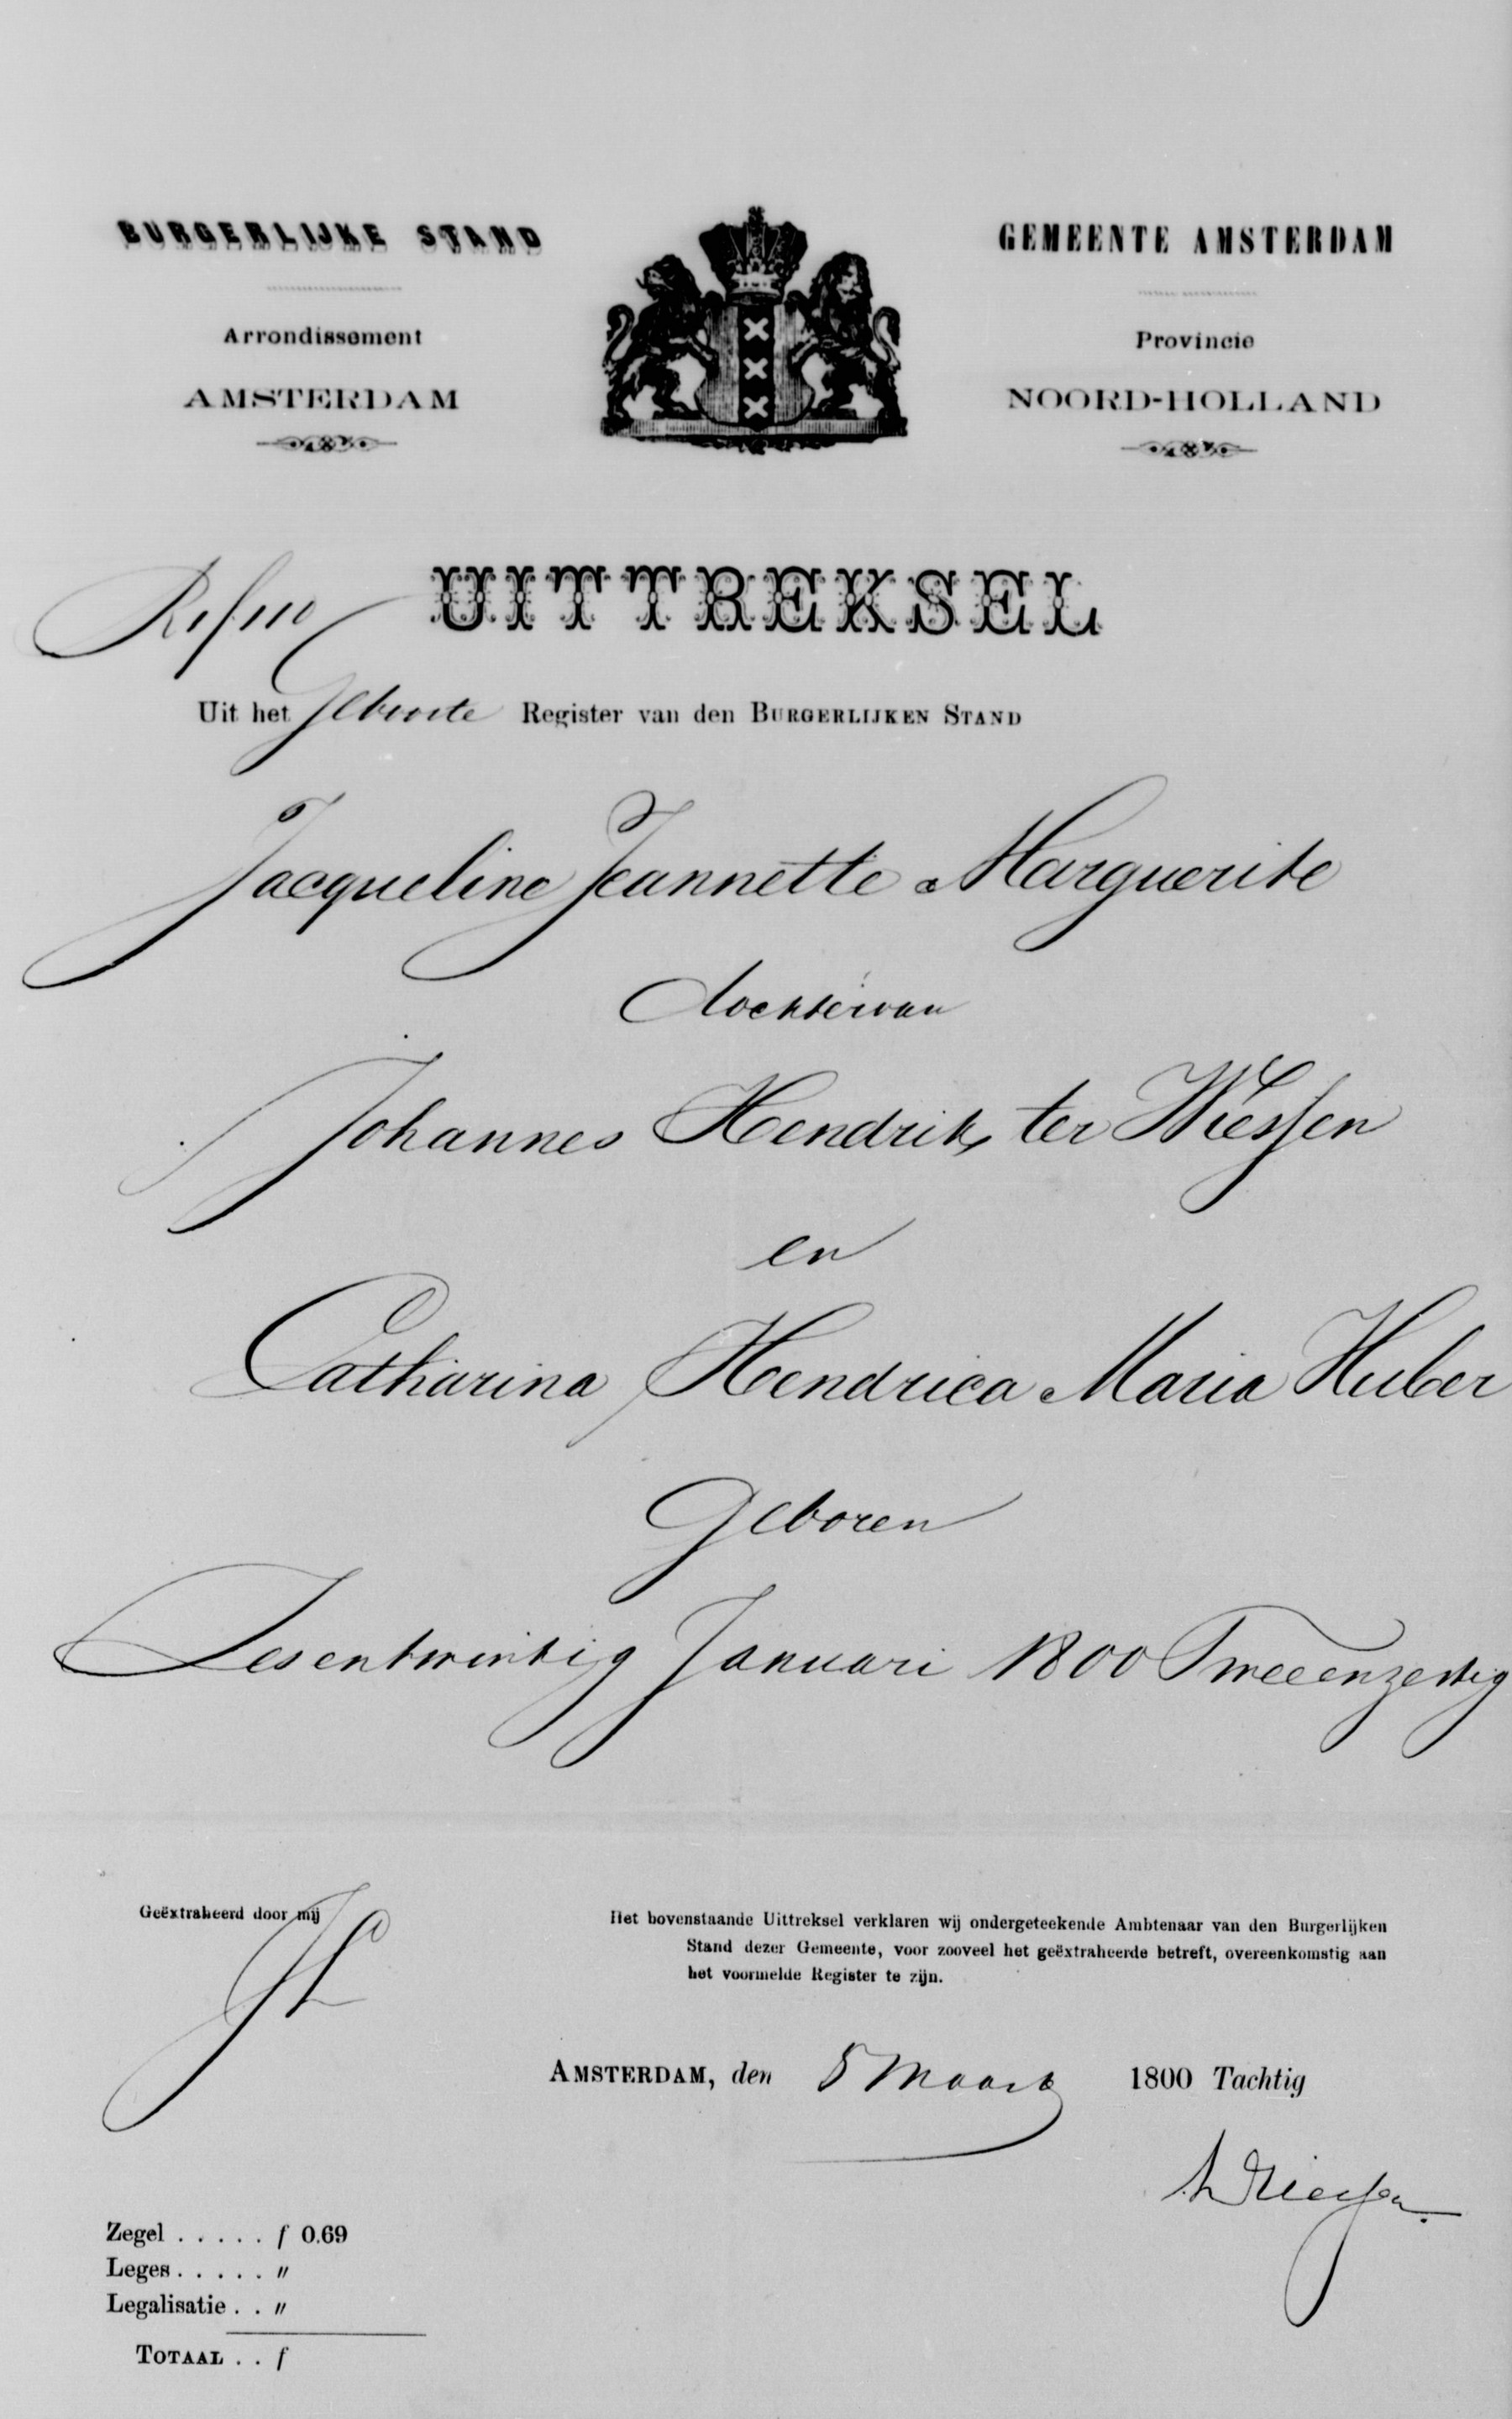 BURGERLIJKE STAND
Arrondissement
AMSTERDAM
GEMEENTE AMSTERDAM
Provincie
NOORD-HOLLAND
UITTREKSEL
Uit het Geboorte Register van den BURGERLIJKEN STAND
Jacqueline Jeannette Marguerite
dochter van
Johannes Hendrik ter Wessen
en
Catharina Hendrica Maria Huber
Geboren
Zesentwintig Januari 1800 Tweeenzestig
Geëxtraheerd door mij
Het bovenstaande Uittreksel verklaren wij ondergeteekende Ambtenaar van den Burgerlijken
Stand dezer Gemeente, voor zooveel het geëxtraheerde betreft, overeenkomstig aan
het voormelde Register te zijn.
AMSTERDAM, den 5 Maart 1800 Tachtig
Zegel . . . . . f 0.69
Leges . . . . . "
Legalisatie . . "
TOTAAL . . f